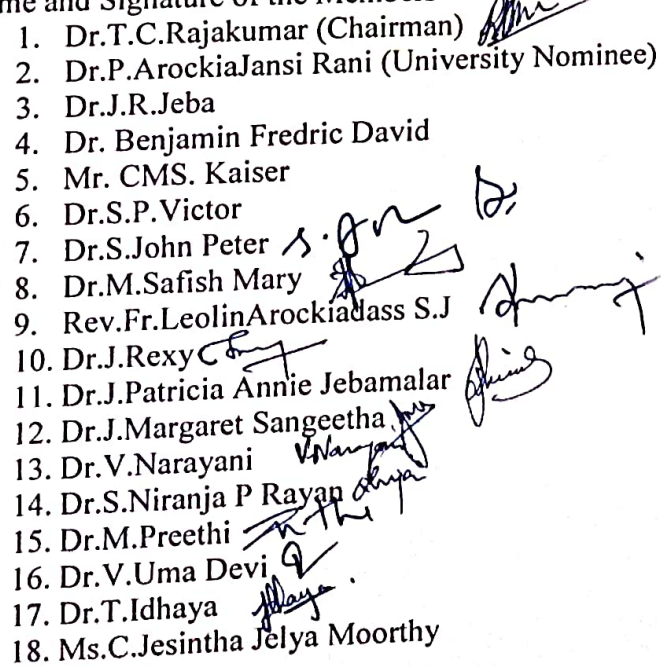 me and Signature of the Members
1. Dr.T.C.Rajakumar (Chairman)
2. Dr.P.ArockiaJansi Rani (University Nominee)
3. Dr.J.R.Jeba
4. Dr. Benjamin Fredric David
5. Mr. CMS. Kaiser
6. Dr.S.P.Victor
7. Dr.S.John Peter
8. Dr.M.Safish Mary
9. Rev.Fr.LeolinArockiadass S.J
10. Dr.J.Rexy
11. Dr.J.Patricia Annie Jebamalar
12. Dr.J.Margaret Sangeetha
13. Dr.V.Narayani V.Narayani
14. Dr.S.Niranja P Rayan
15. Dr.M.Preethi
16. Dr.V.Uma Devi
17. Dr.T.Idhaya Idhaya.
18. Ms.C.Jesintha Jelya Moorthy